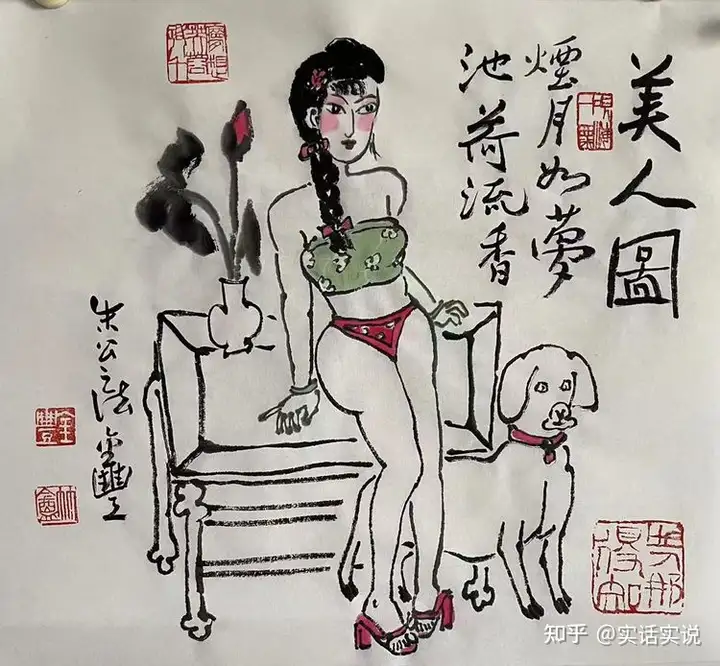 美人圖
煙月如夢
池荷流香
朱公之法
金豐
知乎 @实话实说